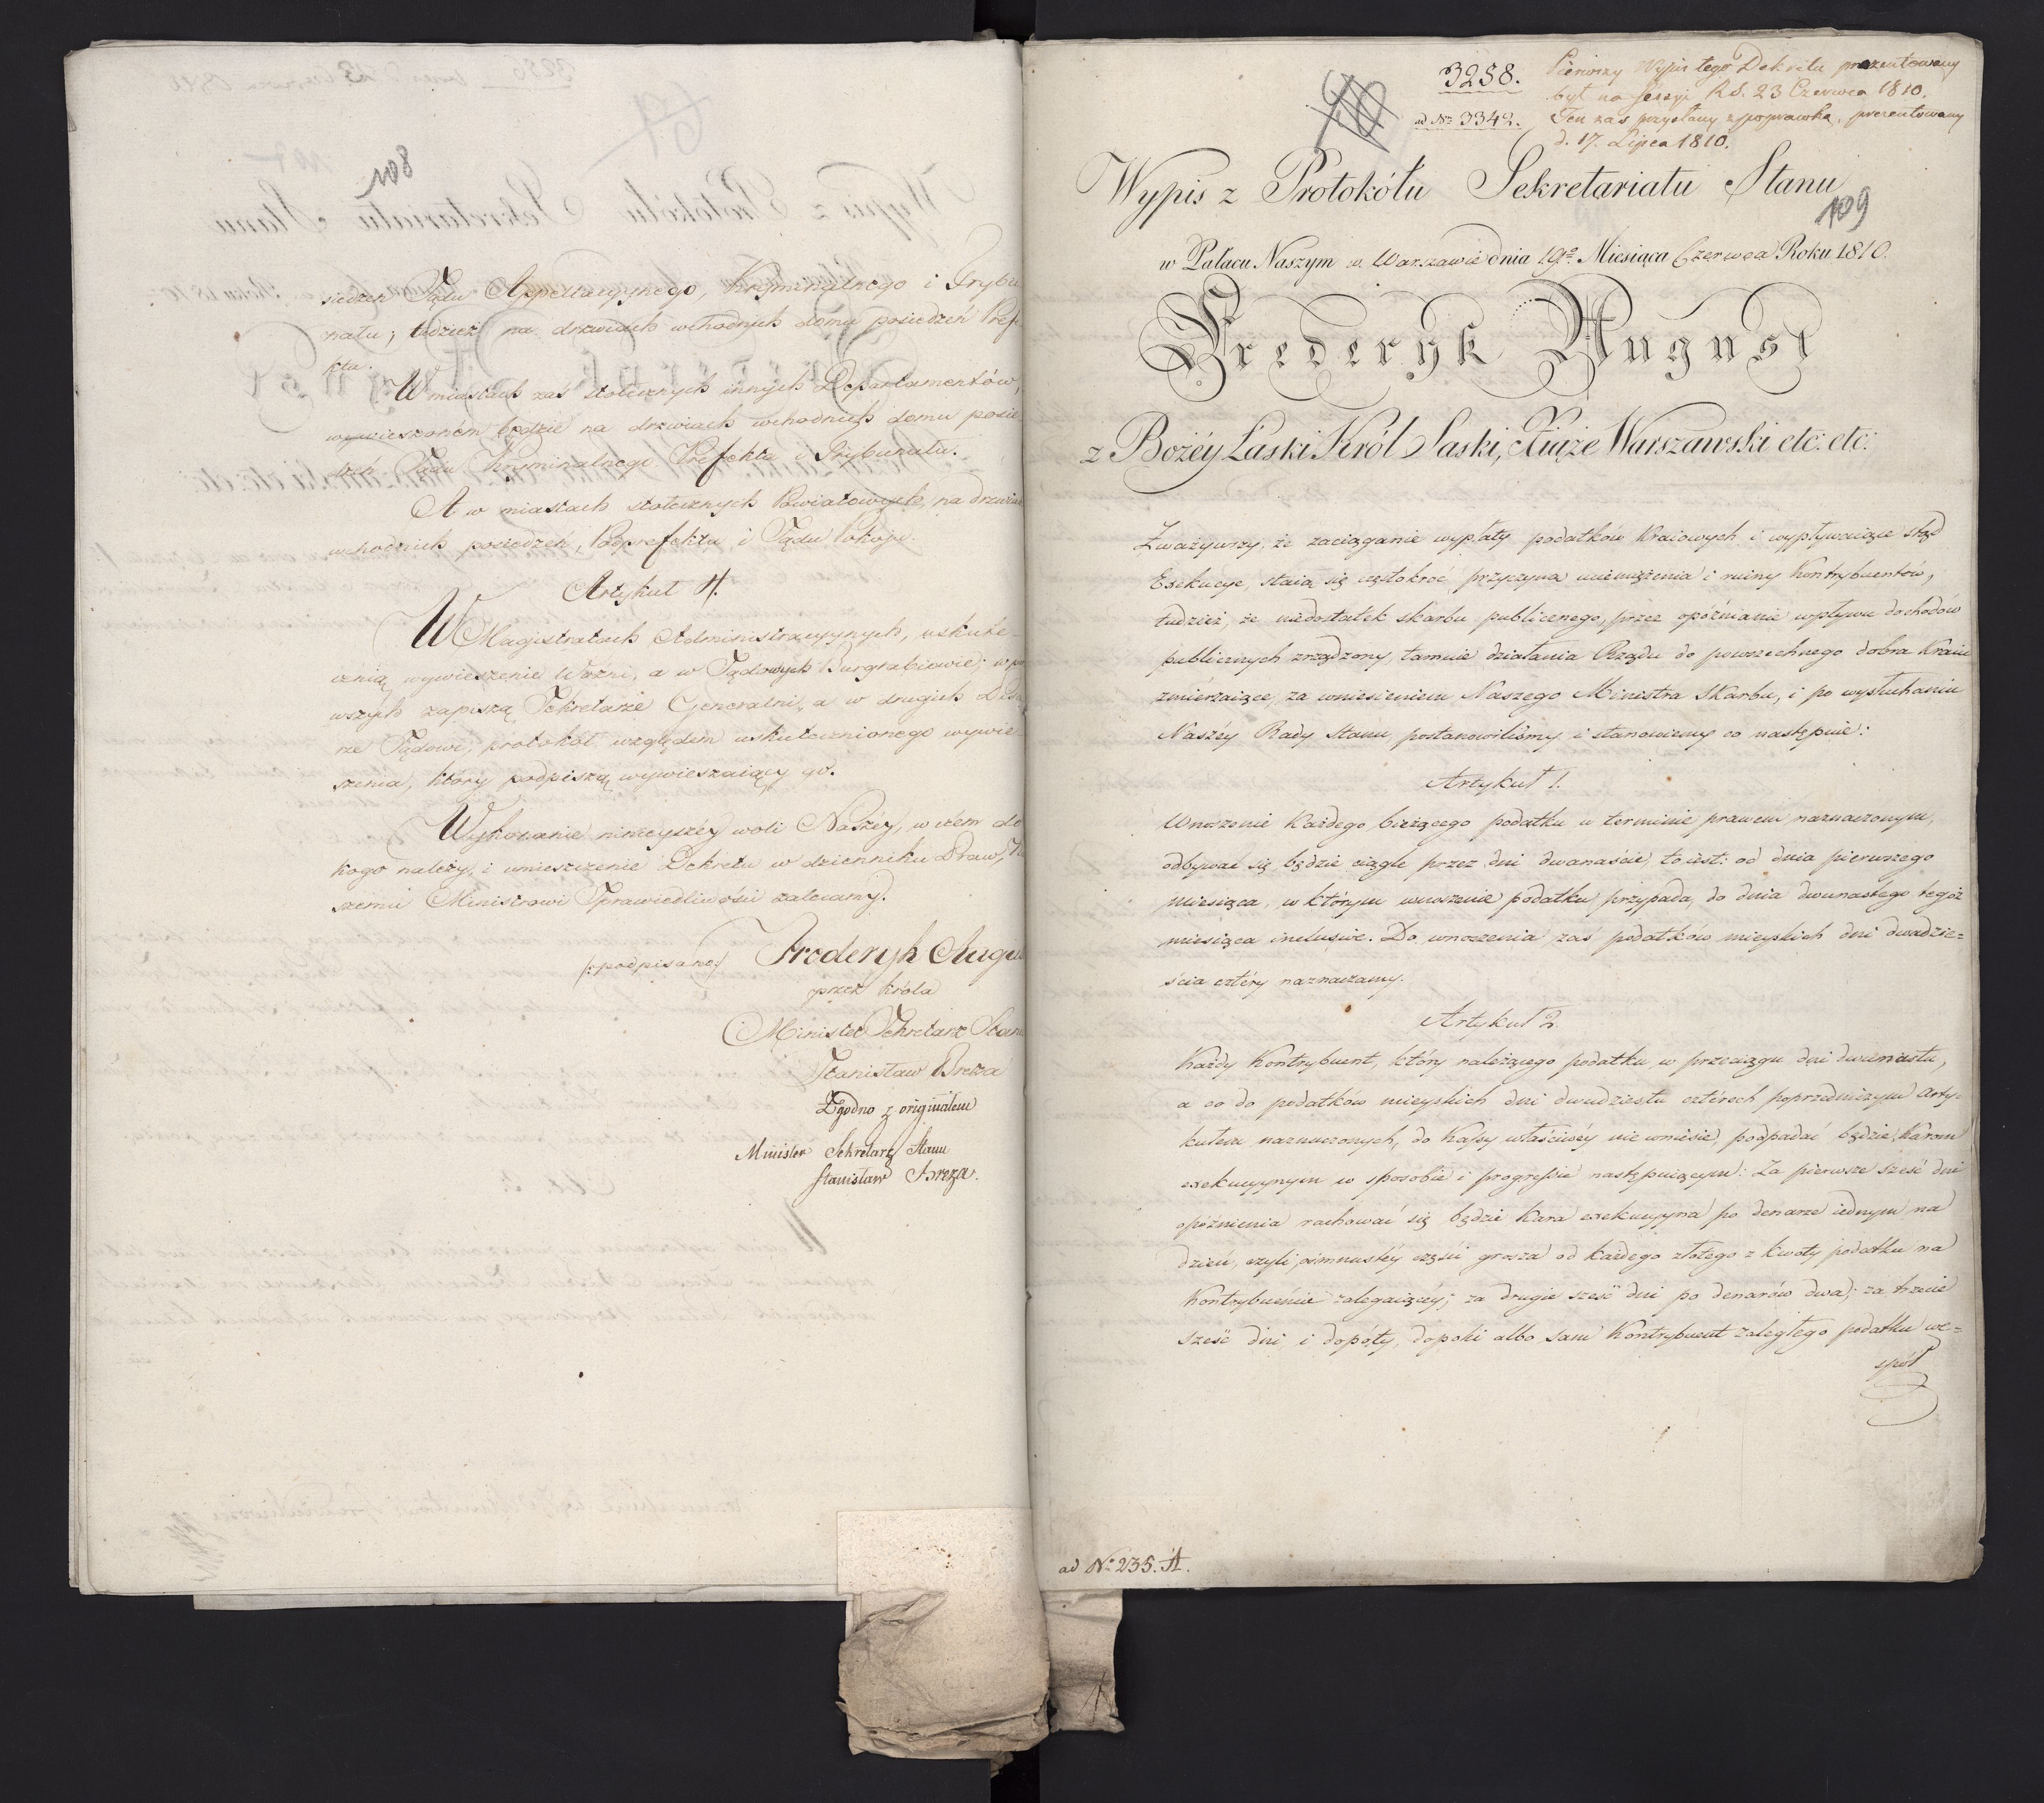 108
siedzeń Sądu Appellacyjnego, Kryminalnego i Trybu
nału; tudzież na drzwiach wchodnich domu posiedzeń Prefe
kta.
W miastach zaś stołecznych innych Departamentów,
wywieszoném będzie na drzwiach wchodnich domu posie
dzeń Sądu Kryminalnego Prefekta i Trybunału.
A w miastach stołecznych Powiatowych, na drzwiach
wchodnich posiedzeń, Podprefekta i Sądu Pokoju.
Artykuł 4.
W Magistratach Administracyjnych, uskute-
cznią wywieszenie Woźni, a w Sądowych Burgrabiowie; w pier
wszych zapiszą Sekretarze Generalni, a w drugich Pisa
rze Sądowi, protokół względem uskutecznionego wywie-
szenia, który podpiszą wywieszaiący go.
Wykonanie ninieyszéy woli Naszéy, w czém do
kogo należy, i umieszczenie Dekretu w dzienniku Praw, Na
szemu Ministrowi Sprawiedliwości zalecamy.
/:podpisano:/ Fryderyk Augu
przez Króla
Minister Sekretarz Stanu
Stanisław Breza
Zgodno z originałem
Minister Sekretarz Stanu
Stanisław Breza.
3258.
ad Nro 3342.
Pierwszy Wypis tego Dekretu prezentowany
był na Sessyi R.S. 23 Czerwca 1810.
Ten zaś przysłany z poprawką, prezentowany
d. 17. Lipca 1810.
Wypis z Protokółu Sekretariatu Stanu
109
w Pałacu Naszym w Warszawie dnia 19go Miesiąca Czerwca Roku 1810.
Frederyk August
z Bożéy Łaski Król Saski, Xiąże Warszawski etc: etc:
Zważywszy, że zaciąganie wypłaty podatków Kraiowych i wypływaiące stąd
Exekucye, staią się częstokroć przyczyną uciemiężenia i ruiny Kontrybuentów,
tudzież, że niedostatek skarbu publicznego, przez opóźnianie wpływu dochodów
publicznych zrządzony, tamuie działania Rządu do powszechnego dobra Kraiu
zmierzaiące, za wniesieniem Naszego Ministra Skarbu, i po wysłuchaniu
Naszéy Rady Stanu, postanowiliśmy i stanowiemy co następuie:
Artykuł 1.
Wnoszenie Każdego bieżącego podatku w terminie prawem naznaczonym,
odbywać się będzie ciągle przez dni dwanaście, to iest: od dnia pierwszego
miesiąca, w którym wnoszenie podatku przypada, do dnia dwunastego tegoż
miesiąca inclusive. Do wnoszenia zaś podatków mieyskich dni dwadzie=
ścia cztéry naznaczamy.
Artykuł 2.
Każdy Kontrybuent, który należącego podatku w przeciągu dni dwunastu,
a co do podatków mieyskich dni dwudziestu czterech poprzedniczym Arty-
kułem naznaczonych, do Kassy właściwéy nie wniesie, podpadać będzie Karom
exekucyynym w sposobie i progressie następuiącym: Za pierwsze sześć dni
opóźnienia rachować się będzie Kara exekucyyna po denarze iednym na
dzień, czyli ośmnastéy części grosza od każdego złotego z Kwoty podatku na
Kontrybuencie zalegaiącéy; za drugie sześć dni po denarów dwa; za trzecie
sześć dni i dopóty, dopóki albo sam Kontrybuent zaległego podatku we=
spół
ad No 235. A.